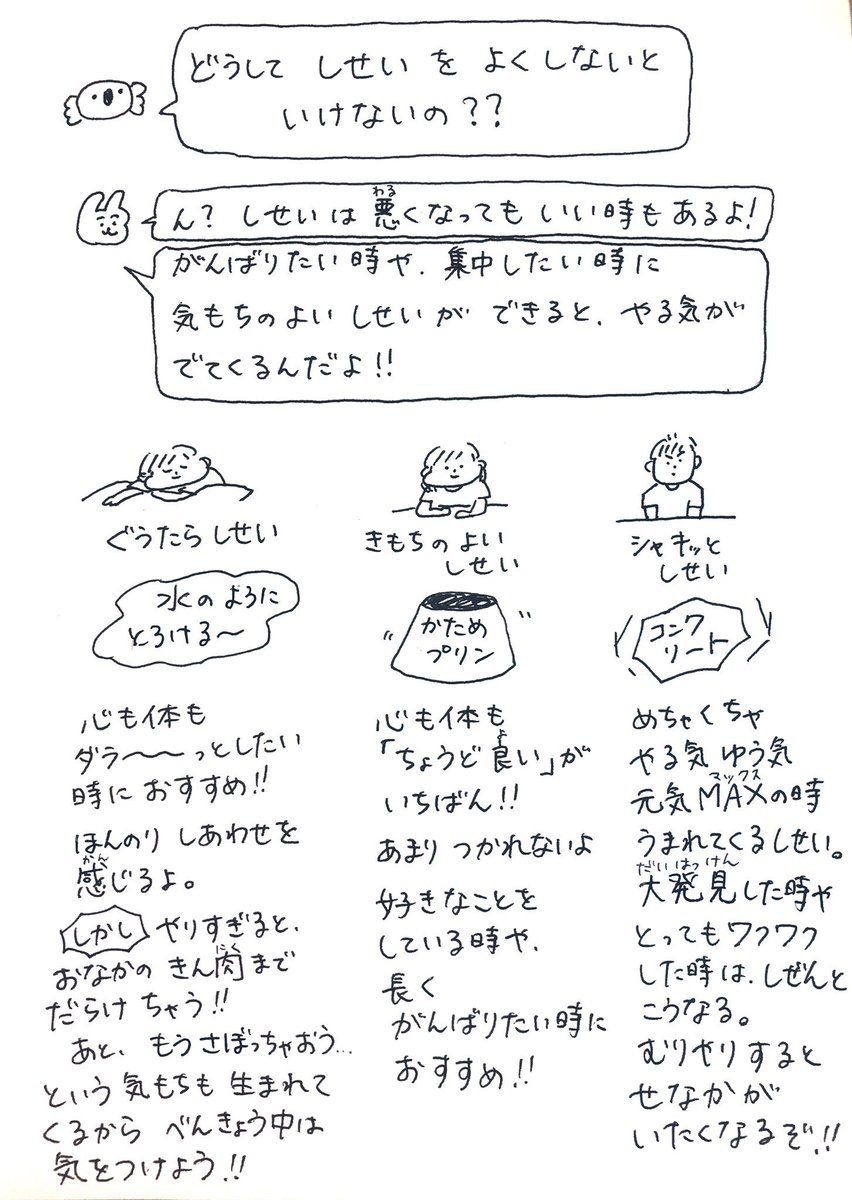 どうして しせい を よくしないと
いけないの??
ん? しせいは 悪くなっても いい時も あるよ!
わる
がんばりたい 時や、集中したい 時に
気もちの よい しせいが できると、やる気が
でてくるんだよ!!
ぐうたら しせい
水の ように
とろける〜
心も体も
ダラ〜〜っとしたい
時に おすすめ!!
ほんのり しあわせを
感じるよ。
かん
しかし やりすぎると、
おなかの きん肉まで
にく
だらけ ちゃう!!
あと、もう さぼっちゃおう…
という 気もちも 生まれて
くるから べんきょう中は
気をつけよう!!
きもちの よい
しせい
かため
プリン
心も体も
「ちょうど 良い」が
よ
いちばん!!
あまり つかれないよ
好きなことを
している時や、
長く
がんばりたい 時に
おすすめ!!
シャキッと
しせい
コンク
リート
めちゃくちゃ
やる気 ゆう気
元気 MAXの時
マックス
うまれてくる しせい。
大発見した時や
だいはっけん
とっても ワクワク
した時は、しぜんと
こうなる。
むりやり すると
せなかが
いたくなるぞ!!